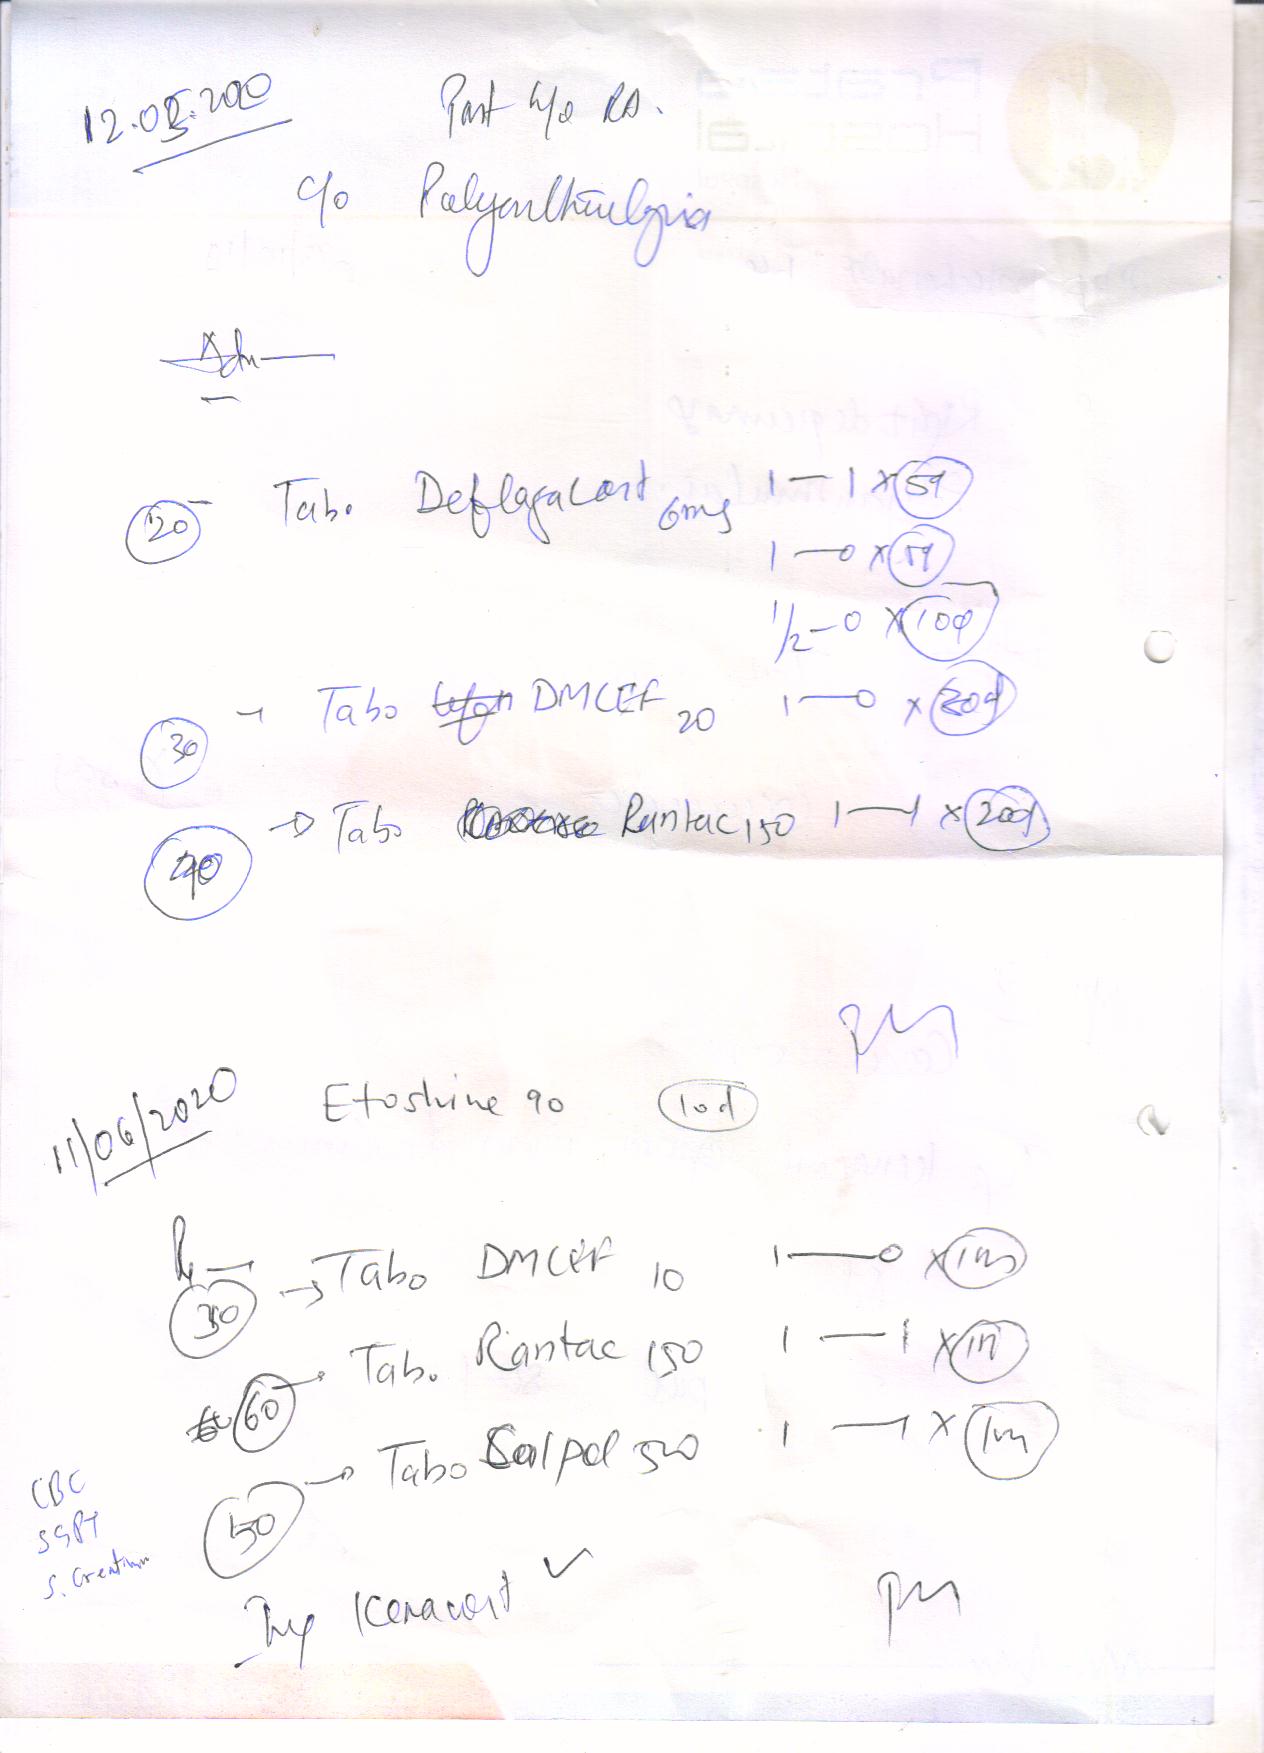 12.05.2020 Past h/o RA.
c/o Polyarthralgia
Adv
20 Tab. Deflazacort 6mg 1-1 x 5d
1-0 x 5d
1/2-0 x 10d
30 - Tab. DMCEF 20 1-0 x 30d
40 → Tab. Rantac 150 1-1 x 20d
11/06/2020 Etoshine 90 10d
Rx
30 → Tab. DMCEF 10 1-0 x 1m
60 Tab. Rantac 150 1-1 x 1m
50 → Tab. Calpol 500 1-1 x 1m
CBC
SGPT
S. Creatinin
Inj Kenacort ✓